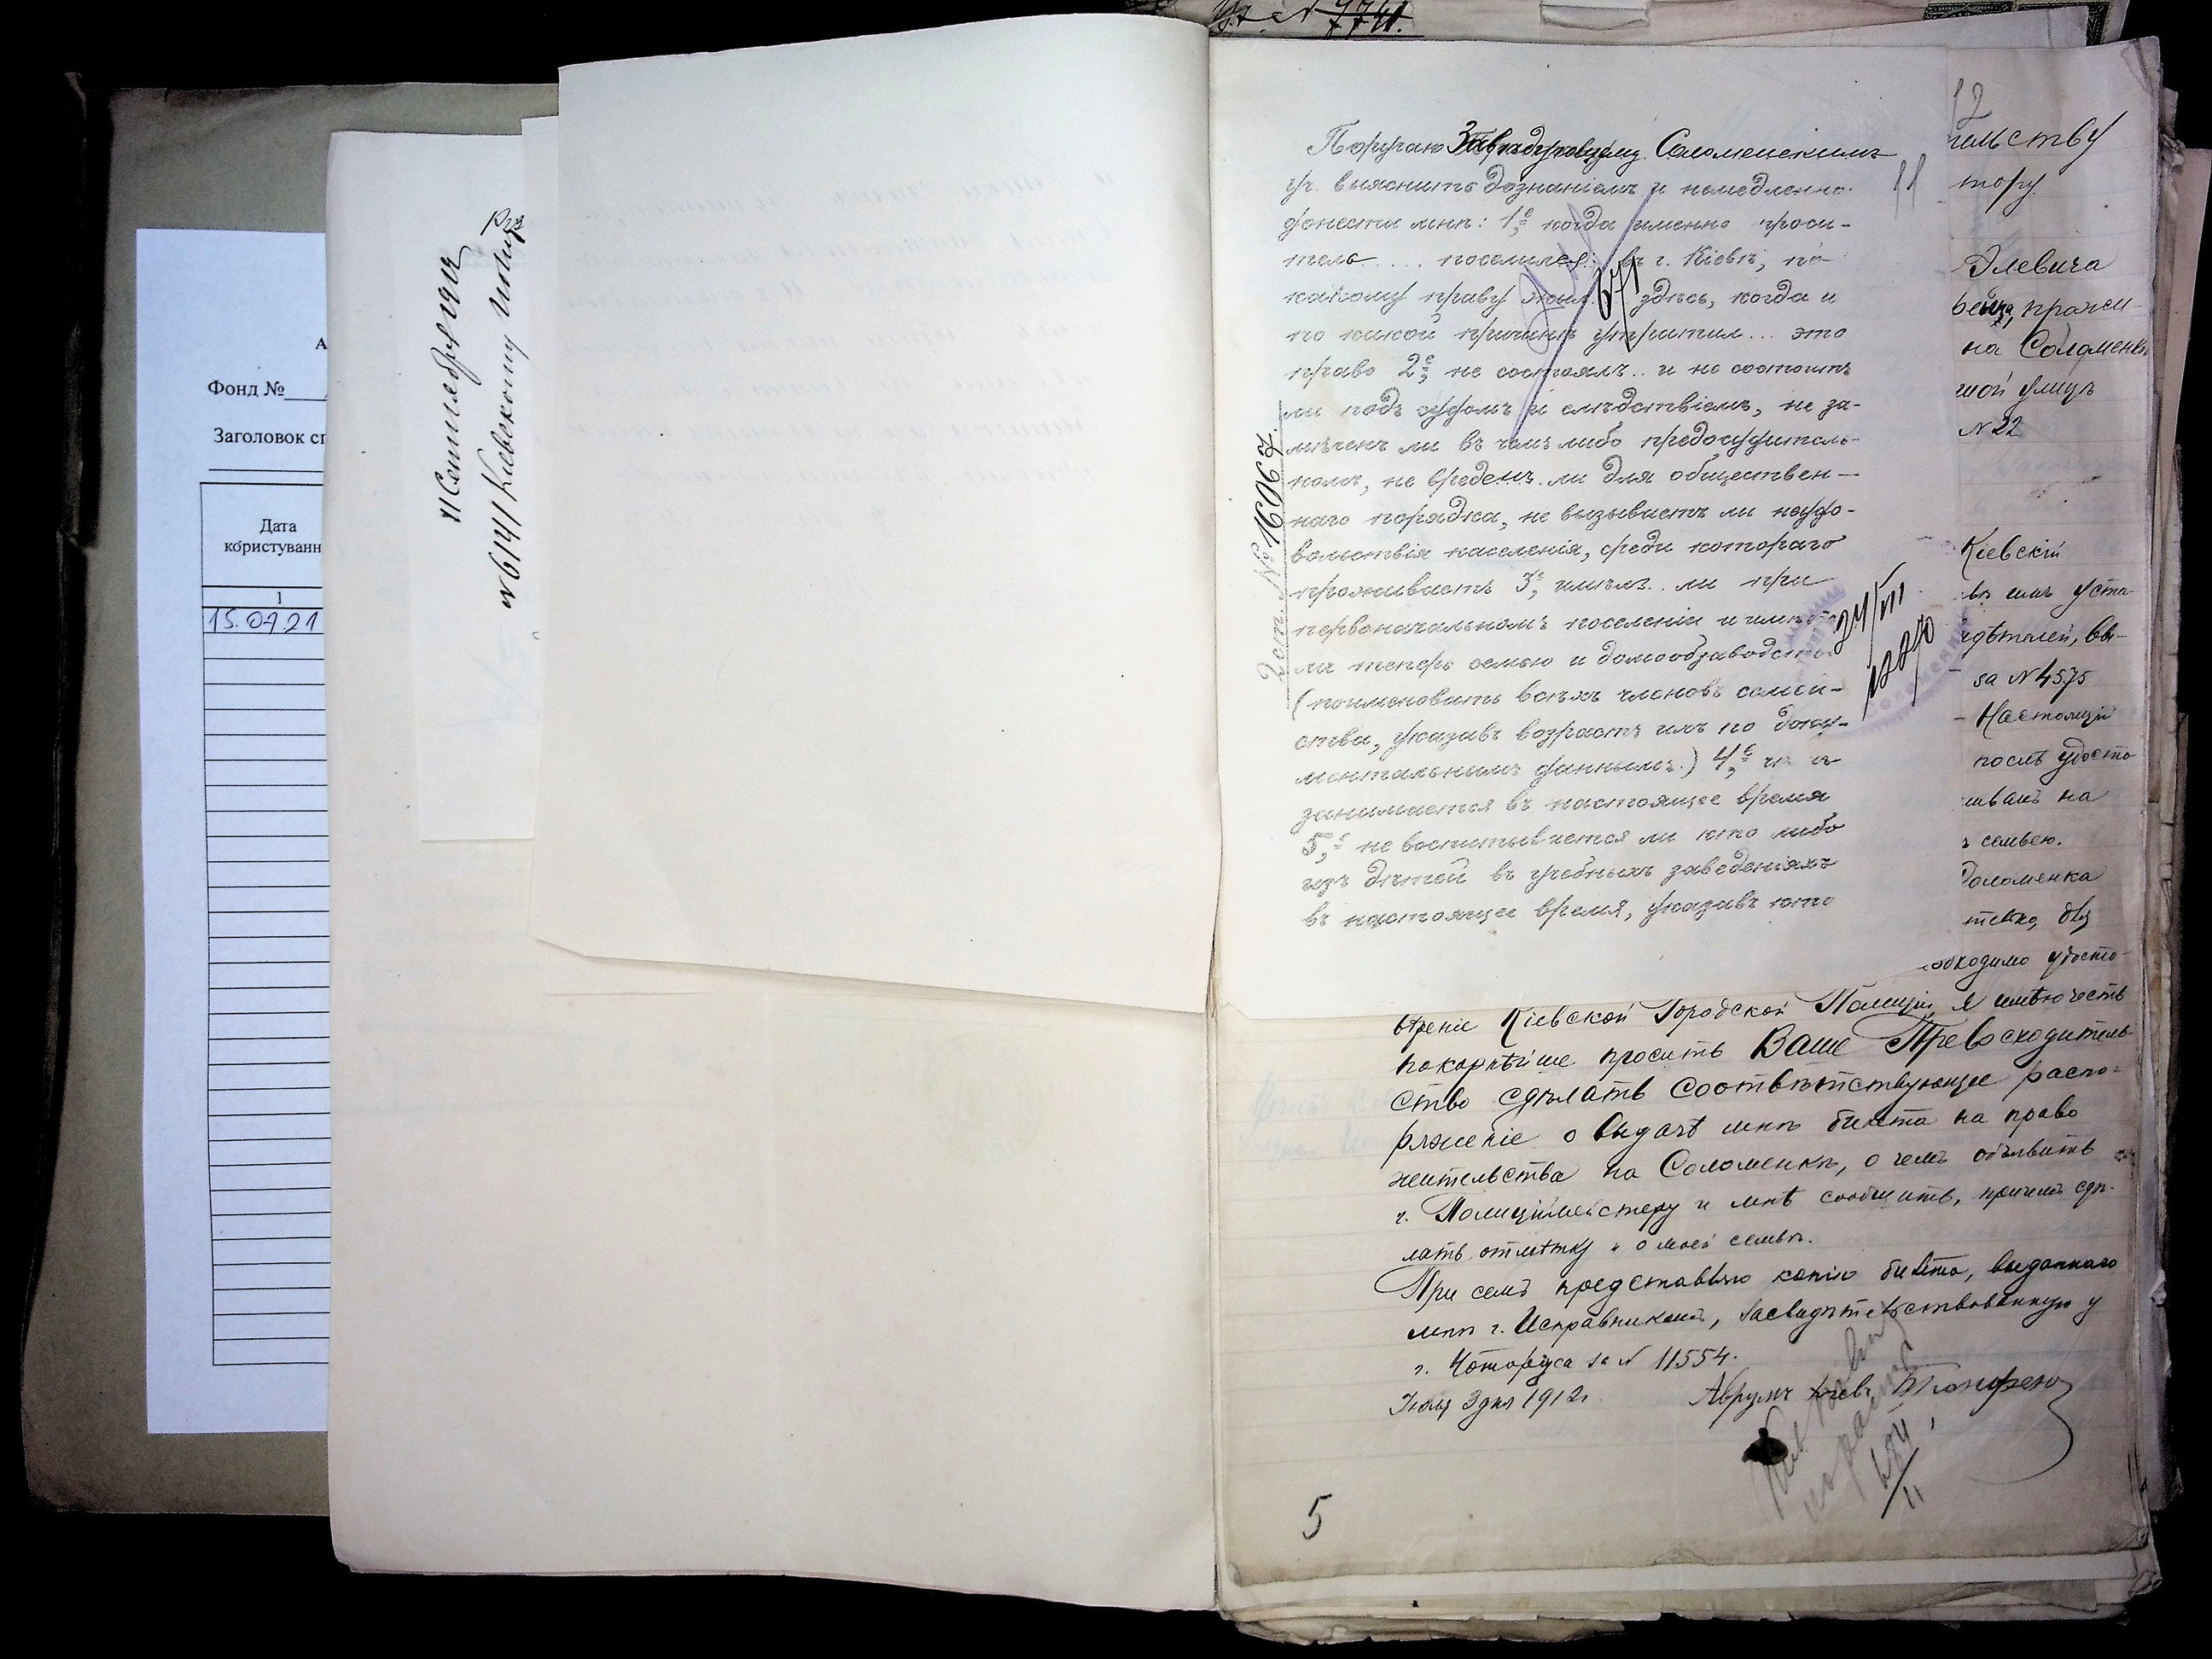 № 7741.
Фонд №
Заголовок сп
Дата
користуванн
1
15.07.21
11 Сентября 1912 г
№ 6141 Киевскому
12
11
Поручаю Завѣдующему Соломенскимъ
уч. выяснить дознаніемъ и немедленно
донести мнѣ: 1е, когда именно проси-
тель ... поселился въ г. Кіевѣ, по
какому праву жил. здѣсь, когда и
по какой причинѣ утратил... это
право 2е, не состоялъ.. и не состоитъ
ли подъ судомъ и слѣдствіемъ, не за-
мѣченъ ли въ чемъ либо предосудитель-
номъ, не вреденъ ли для обществен-
наго порядка, не вызываетъ ли неудо-
вольствія населенія, среди котораго
проживаетъ 3е, имѣлъ.. ли при
первоначальномъ поселеніи и имѣетъ
ли теперь семью и домообзаводство
(поименовать всѣхъ членовъ семей-
ства, указавъ возрастъ ихъ по доку-
ментальнымъ даннымъ.) 4е,
занимается въ настоящее время
5,е не воспитывается ли кто либо
изъ дѣтей въ учебныхъ заведеніяхъ
въ настоящее время, указавъ кто
№ 16067.
24/VII
1220
тельству
тору
Элевича
прожи-
на Соломенкѣ
шой улицѣ
№ 22
Кіевскій
въ имъ уста-
дѣтелей, вы-
за № 4575
Настоящій
послѣ удосто
на
ъ семьею.
Соломенка
обходимо удосто-
вѣреніе Кіевской Городской Полиціи, я имѣю честь
покорнѣйше просить Ваше Превосходитель-
ство сдѣлать соотвѣтствующее распо-
ряженіе о выдачѣ мнѣ билета на право
жительства на Соломенкѣ, о чемъ объявить
г. Полиціймейстеру и мнѣ сообщить, причемъ сдѣ-
лать отмѣтку и о моей семьѣ.
При семъ представляю копію билета, выданнаго
мнѣ г. Исправникомъ, засвидѣтельствованную у
г. Нотаріуса за № 11554.
Іюля 3 дня 1912 г. Аврумъ
5